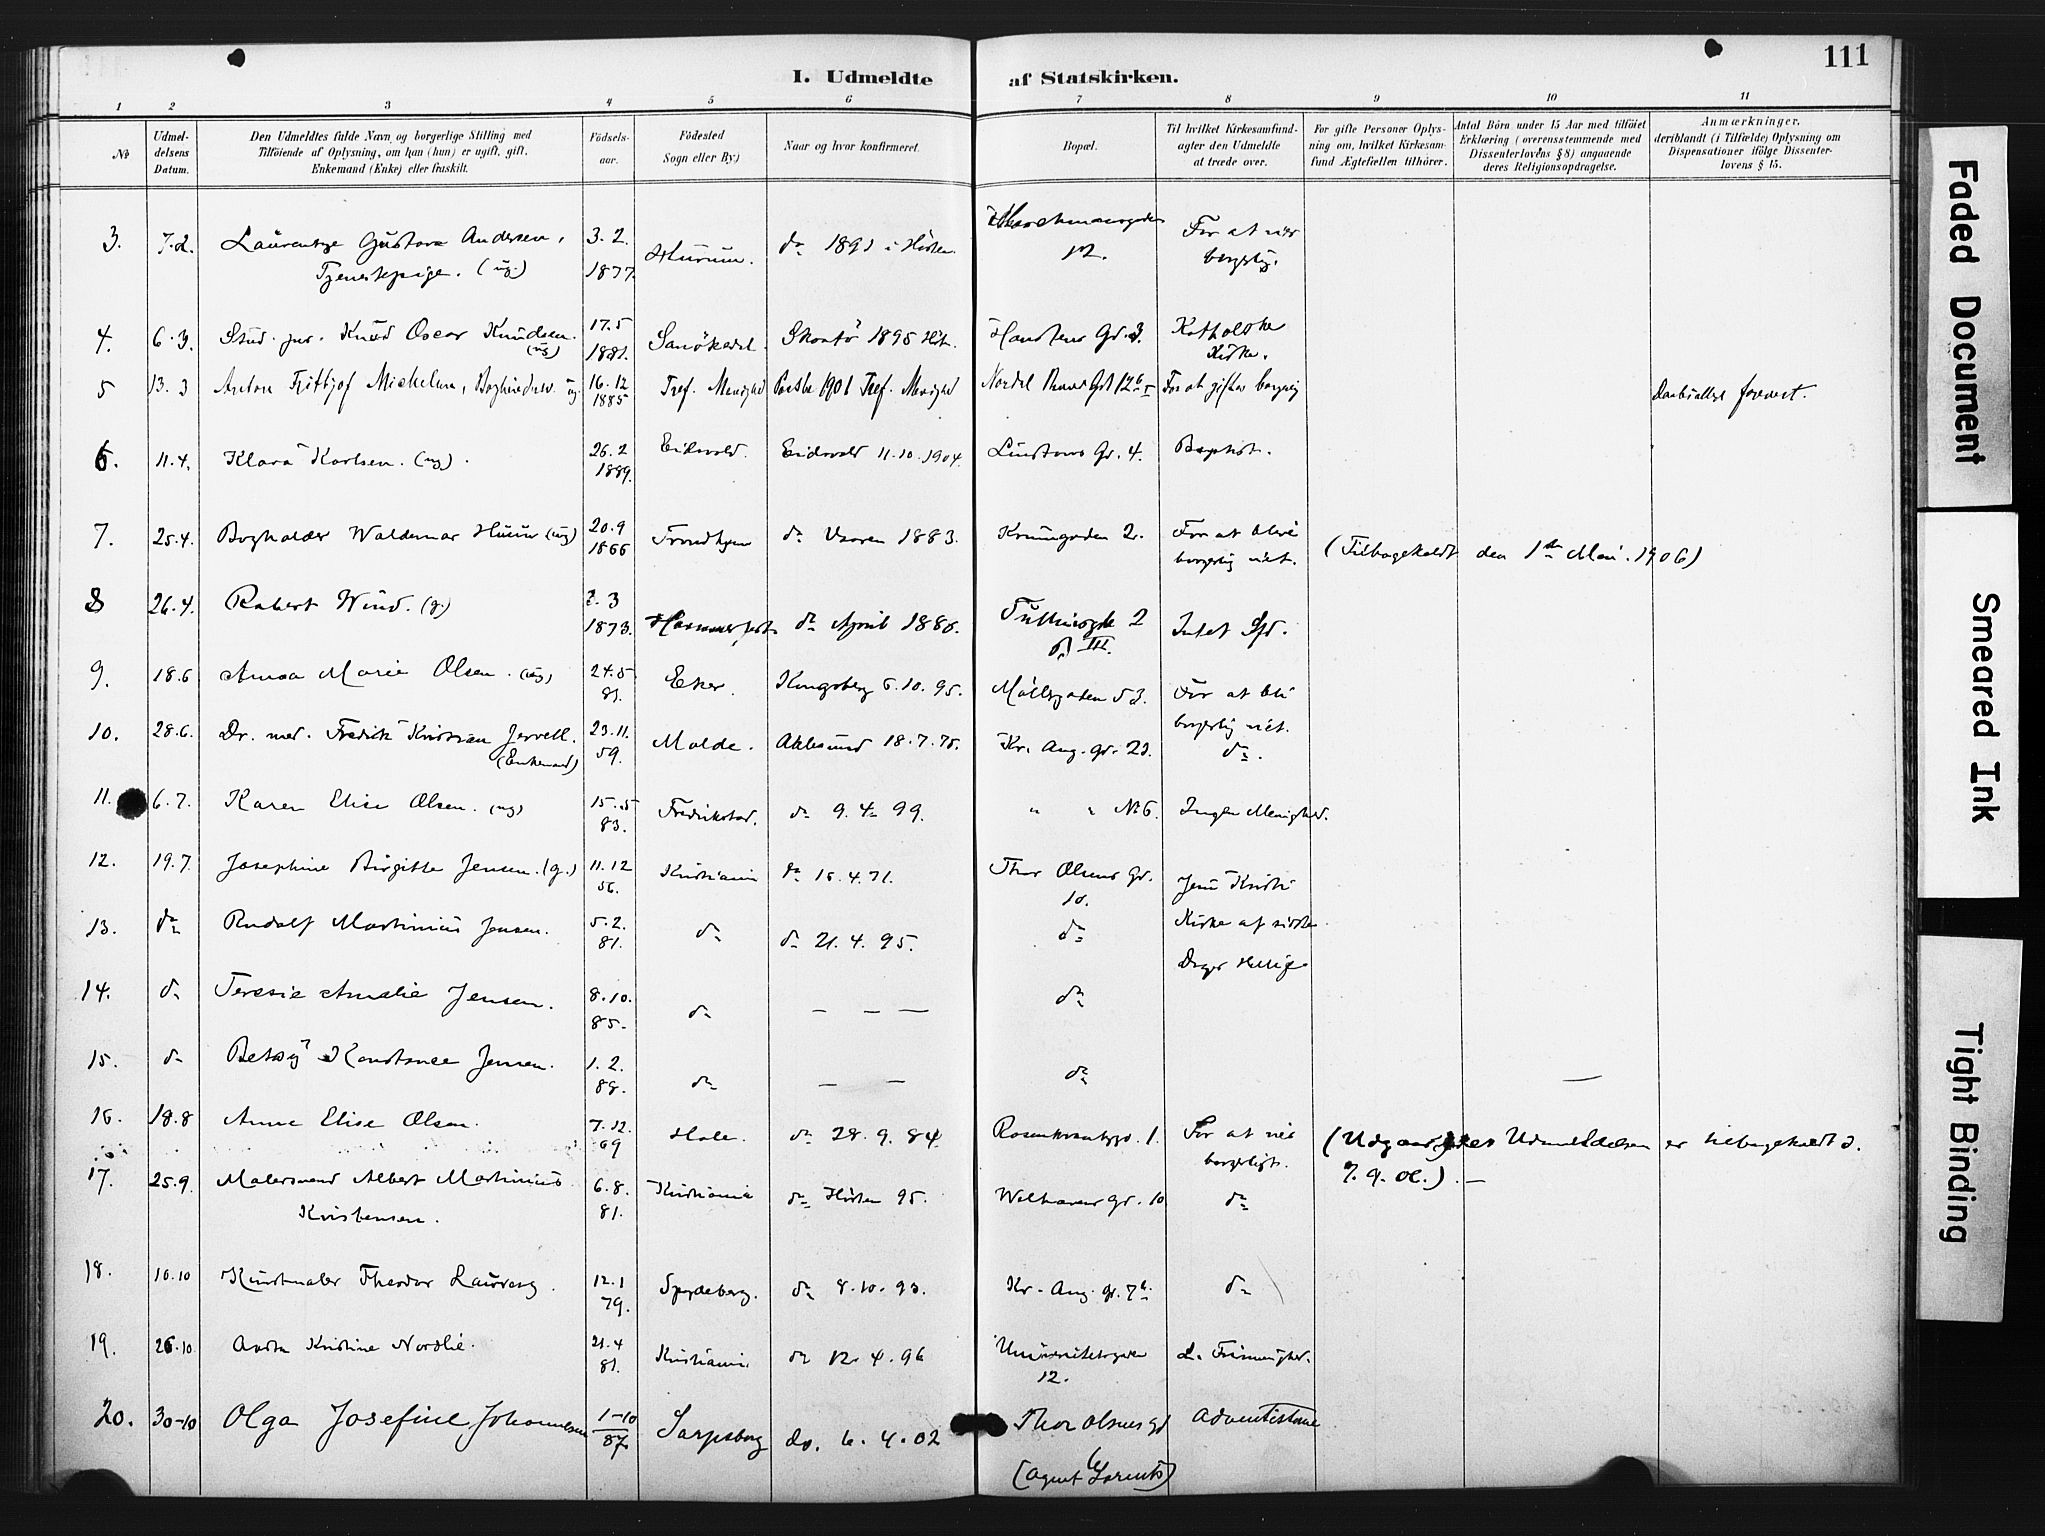 111
I. Udmeldte af Statskirken.
1 2 3 4 5 6 7 8 9 10 11
№
Udmel-
delsens
Datum.
Den Udmeldtes fulde Navn og borgerlige Stilling med
Tilföiende af Oplysning, om han (hun) er ugift, gift,
Enkemand (Enke) eller fraskilt.
Födsels-
aar.
Födested
Sogn eller By.)
Naar og hvor konfirmeret.
Bopæl.
Til hvilket Kirkesamfund-
agter den Udmeldte
at træde over.
For gifte Personer Oplys-
ning om, hvilket Kirkesam-
fund Ægtefællen tilhörer.
Antal Börn under 15 Aar med tilföiet
Erklæring (overensstemmende med
Dissenterlovens § 8) angaaende
deres Religionsopdragelse.
Anmærkninger,
deriblandt (i Tilfælde) Oplysning om
Dispensationer ifölge Dissenter-
lovens § 15.
3. 7.2. Laurentze Gustava Andersen, 3.2. Hurum. do 1891 i Hösten
Tjenestepige. (ug.) 1877. 12. For at vies borgerlig.
4. 6.3. Stud. jur. Knud Oscar Knudsen. 17.5 Sanökedal. Skaatö 1895 Höst. Gd. 3. Katholske
(ug) 1881. Kirke.
5 13.3 Anton Fritjof Michelsen, ug. 16.12 Tref. Menighed Paaske 1901 Tref. Menighed Nordal Bruns Gd 12 b I For at giftes borgerlig
1885 forevist.
6. 11.4. Klara Karlsen. (ug). 26.2 Eidsvold. Eidsvold 11.10.1904. Lindstows Gd. 4. Baptist.
1889.
7. 25.4. Bogholder Waldemar (ug) 20.9 Trondhjem do Vaaren 1883. Krumgaden 2. For at blive
1866 borgerlig viet. (Tilbagekaldt den 1ste Mai. 1906)
8 26.4. Robert Wind. (g.) 3
1873. Hammerfest do April 1888. 2 III. Intet Sfd.
9. 18.6 Anna Marie Olsen. (ug) 24.5 Eker. Kongsberg 6.10.95. Möllegaten 53. For at bli
81. borgerlig viet.
10. 28.6. Dr. med. Fredrik Kristian Jervell. 23.11. Molde. Aalesund 18.7.75. Kr. Aug. gd. 23. do.
(Enkemand) 59.
11. 6.7. Karen Elise Olsen. (ug) 15.5 Fredrikstad. do 9.4.99. " " № 6. Ingen Menighed.
83.
12. 19.7. Josephine Birgitte Jensen. (g.) 11.12 Kristiania do 16.4.71. Thor Olsens Gd. Jesu Kristi
56. 10.
13. do Rudolf Martinius Jensen. 5.2. do do 21.4.95. do Kirke af sidste
81. Dages Hellige
14. do Teresie Amalie Jensen. 8.10. do — — — do
85.
15. do Betsy Konstance Jensen. 1.2. do — — do —
88.
16. 18.8 Anne Elise Olsen. 7.12. Hole. do 28.9.84 Rosenkrantzgd. 1. For at vies (Udgaar, des Udmeldelsen er tilbagekaldt d.
69 borgerligt. 7.9.06.). —
17. 25.9. Malersvend Albert Martinius 6.8. Kristiania do Hösten 95. Welhavens Gd. 10 do
Kristensen. 81.
18. 16.10 Kunstmaler Theodor Laureng. 12.1 Spydeberg. do 8.10.93. Kr. Aug. gd. 7 b. do
79.
19. 26.10 Kristine Nordlie. 21.4 Kristiania. do 12.4.96 Universitetsgaden L. Frimenighed.
81. 12.
20. 30-10 Olga Josefine Johannesen 1-10 Sarpsborg do. 6.4.02 Thor Olsens gd Adventisterne
87. (agent Lorents)
Faded Document
Smeared Ink
Tight Binding